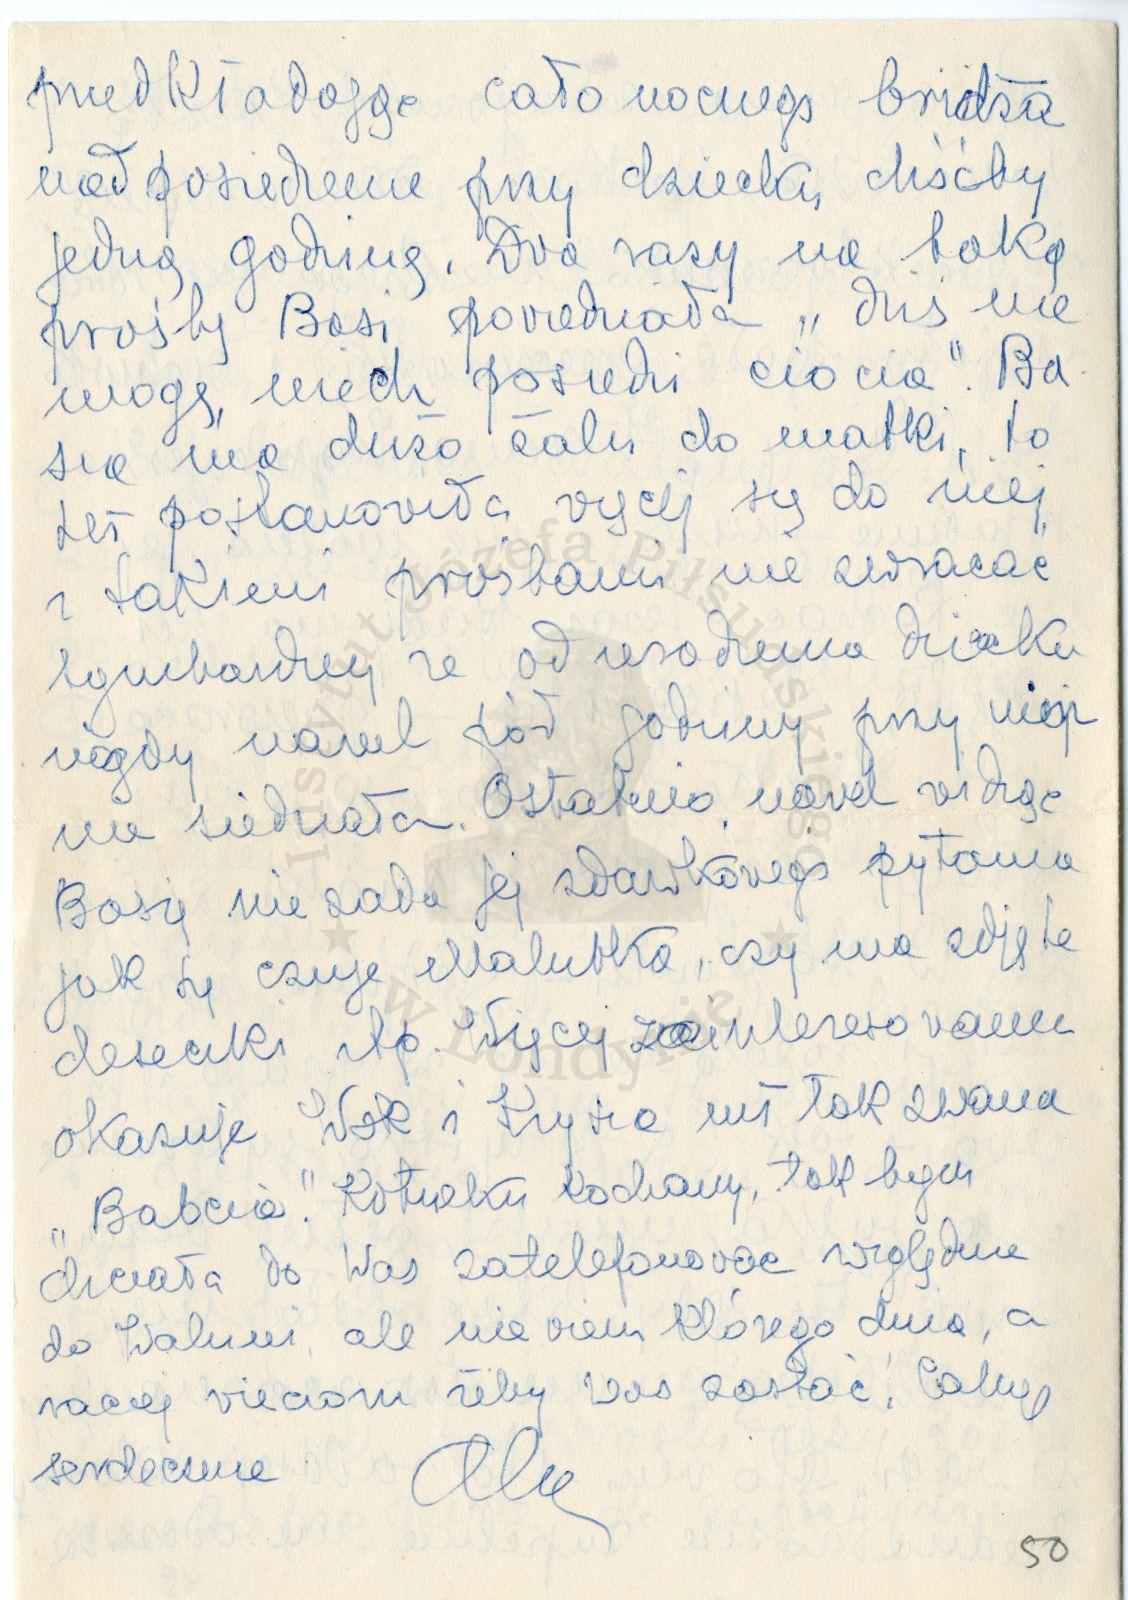 przedkładając całonocnego bridża
nad posiedzenie przy dziecku choćby
jedną godzinę. Dwa razy na taką
prośbę Basi powiedziała „dziś nie
mogę, niech posiedzi ciocia". Ba-
sia ma dużo żalu do matki, to
też postanowiła więcej się do niej
z takiemi prośbami nie zwracać
tymbardziej że od urodzenia dziecka
nigdy nawet pół godziny przy niej
nie siedziała. Ostatnio nawet widząc
Basię nie zada jej zdawkowego pytania
jak się czuje Malutka, czy ma zdjęte
deseczki itp. Więcej zainteresowania
okazuje Wok i Krysia niż tak zwana
„Babcia". Kotuśku kochany, tak bym
chciała do Was zatelefonować względnie
do Waluni, ale nie wiem którego dnia, a
raczej wieczoru żeby Was zastać. Całuję
serdecznie Ala
50
Instytut Józefa Piłsudskiego
w Londynie